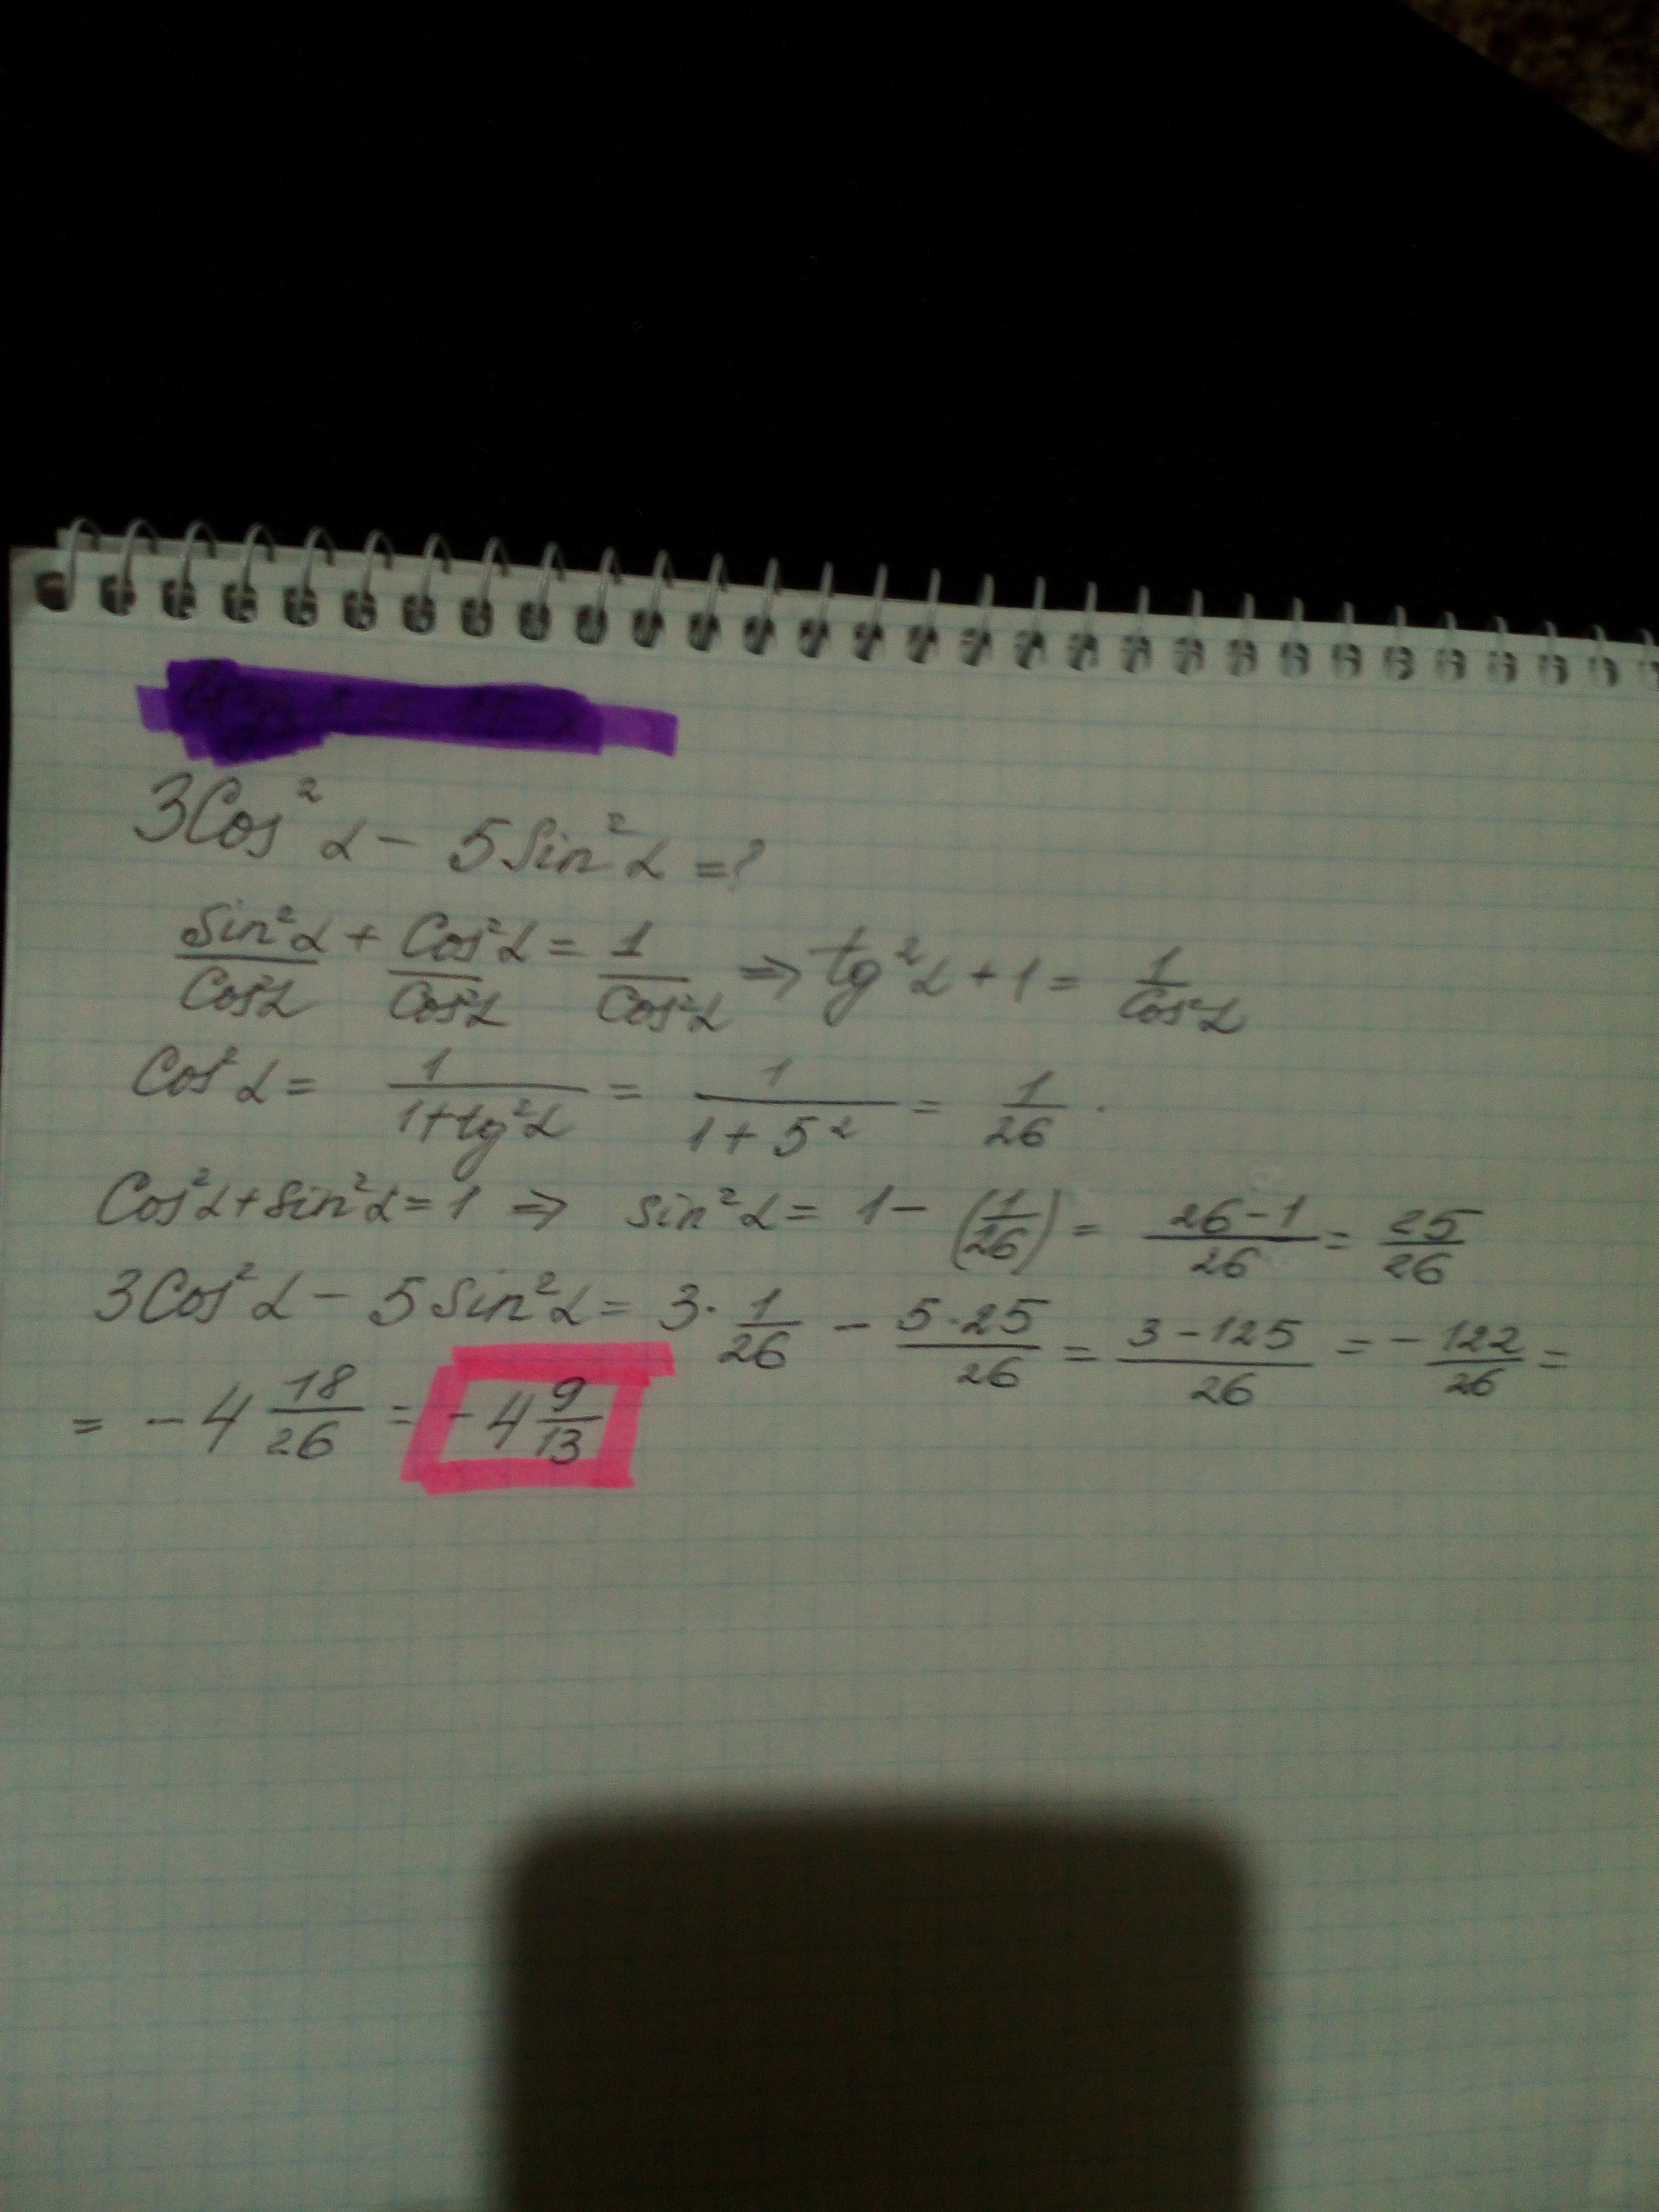 3Cos²α - 5Sin²α = ?
Sin²α/Cos²α + Cos²α/Cos²α = 1/Cos²α ⇒ tg²α + 1 = 1/Cos²α
Cos²α = 1/(1+tg²α) = 1/(1+5²) = 1/26 .
Cos²α + Sin²α = 1 ⇒ sin²α = 1 - (1/26) = (26-1)/26 = 25/26
3Cos²α - 5Sin²α = 3 · 1/26 - (5·25)/26 = (3-125)/26 = - 122/26 =
= - 4 18/26 = - 4 9/13